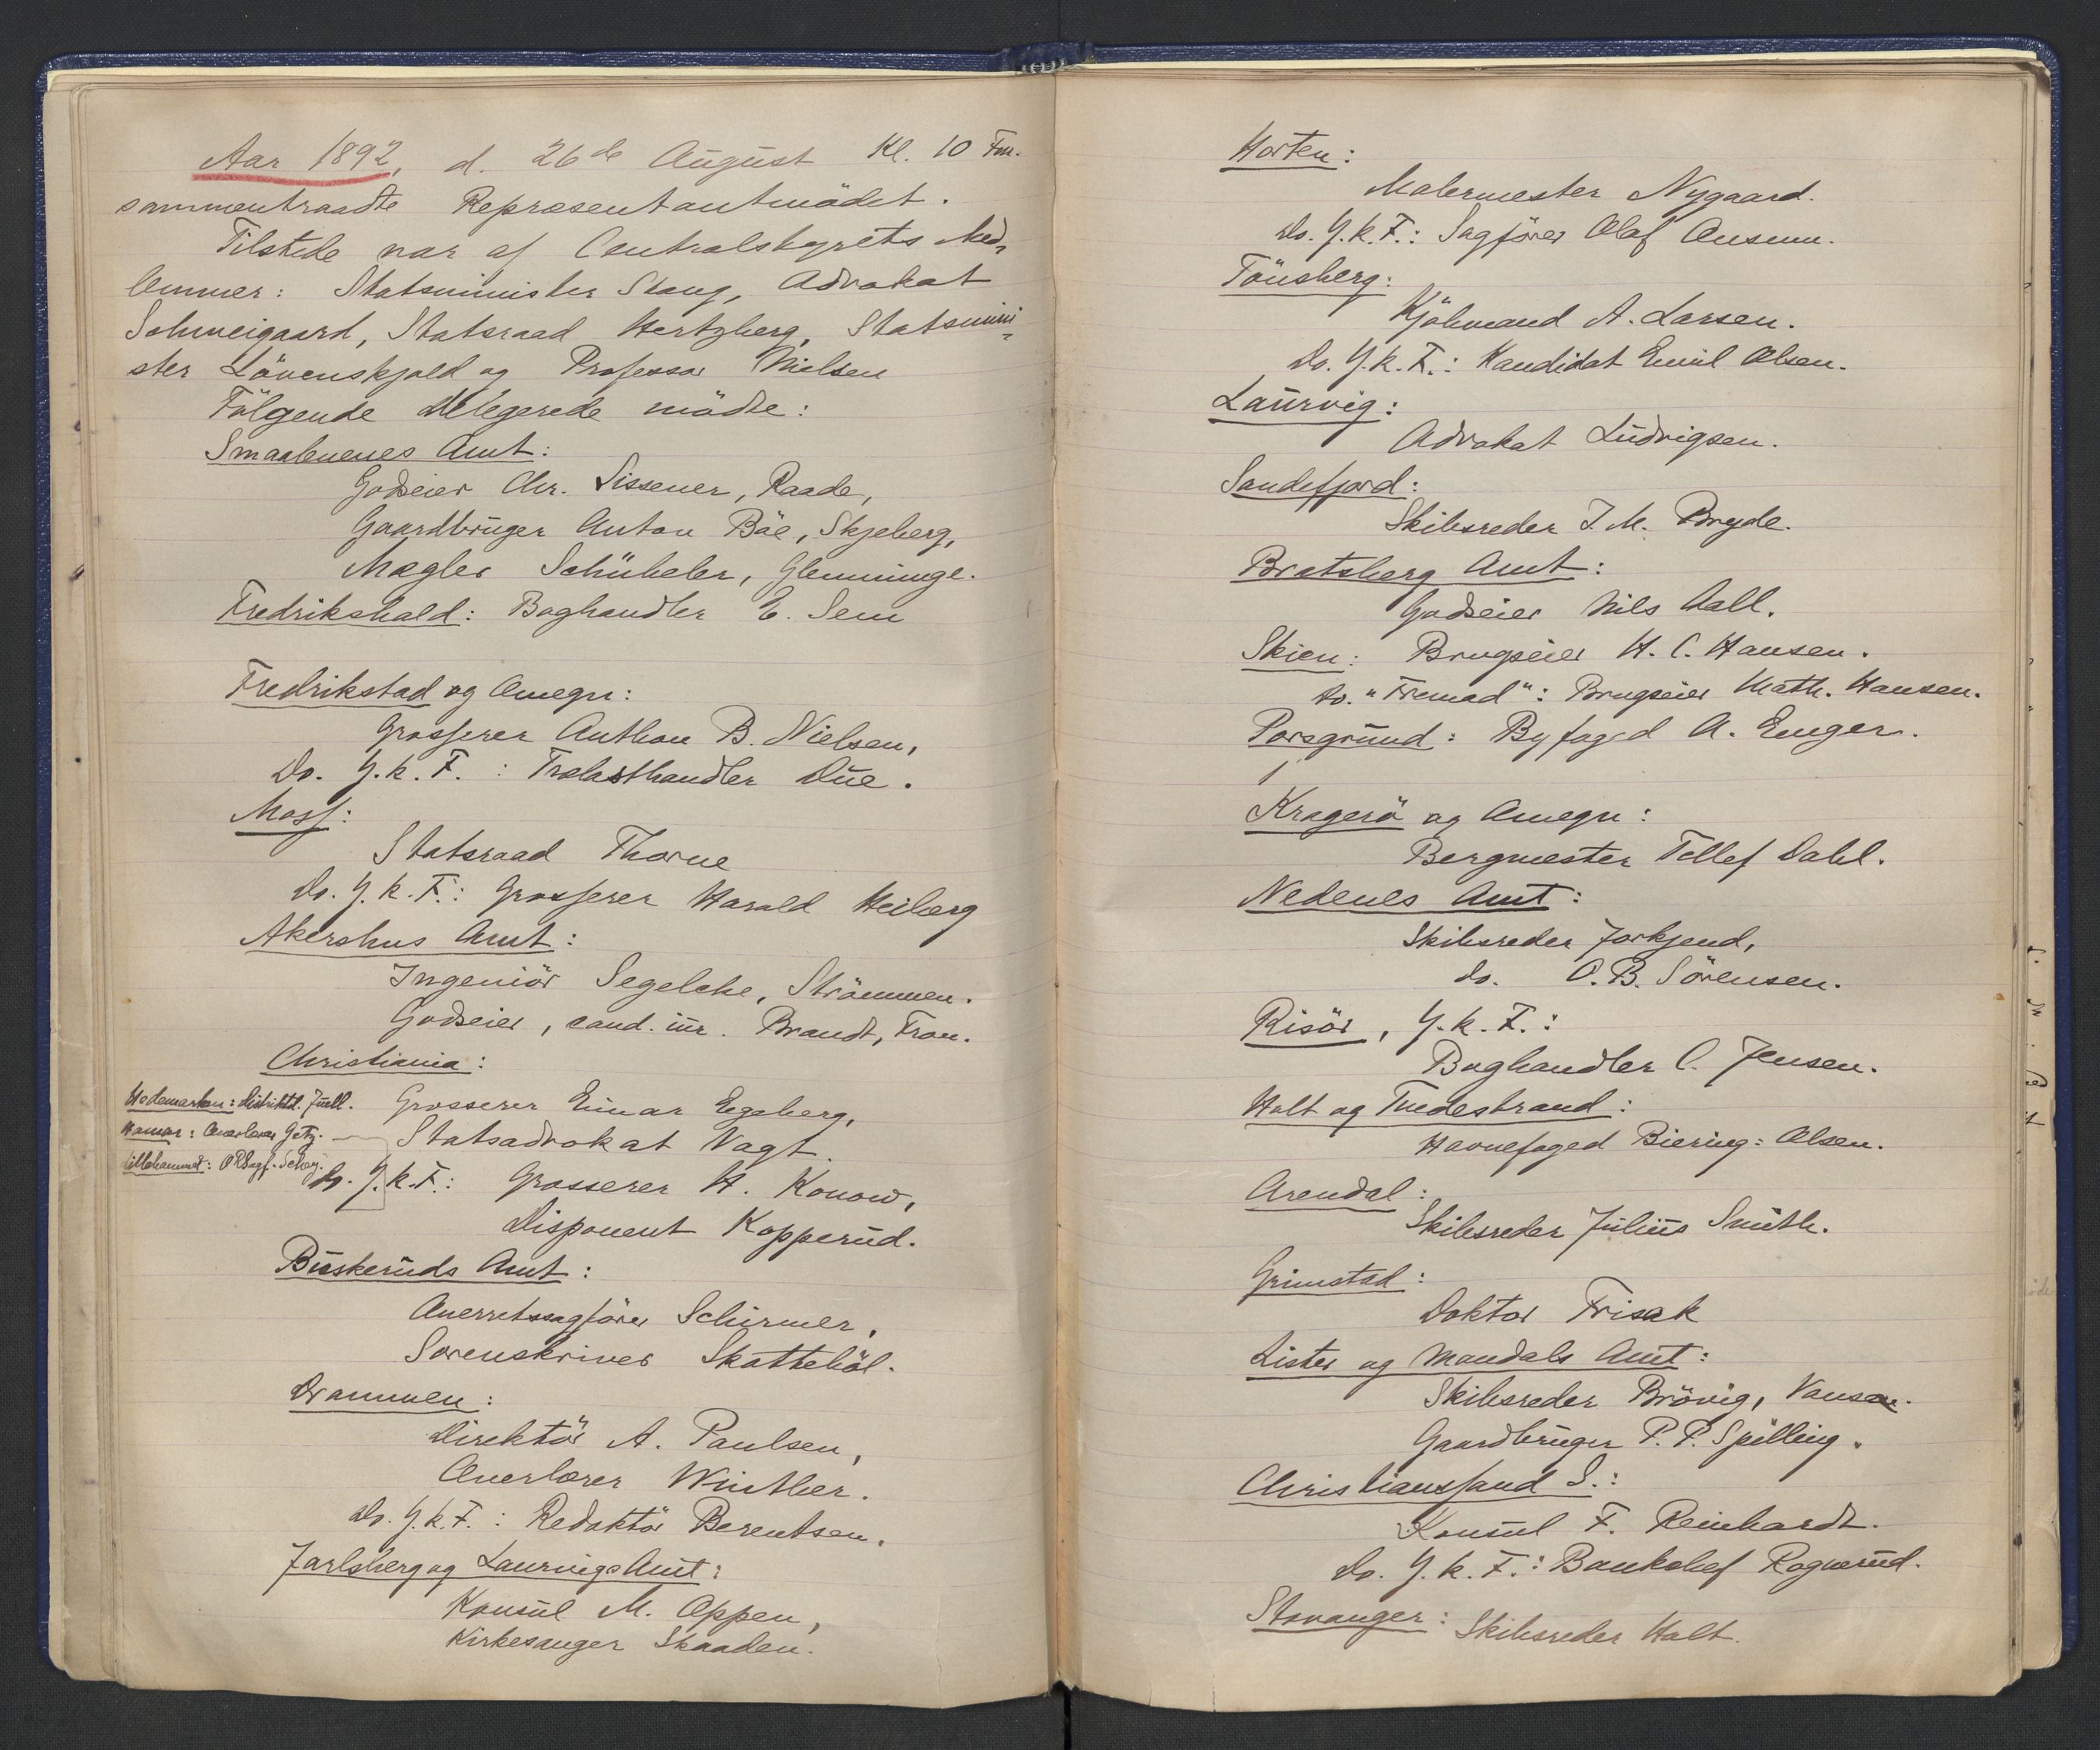 Aar 1892, d. 26de August Kl. 10 Fm.
sammentraadte Repræsentantmödet.
Tilstede var af Centralstyrets Med-
lemmer: Statsminister Stang, Advokat
Schweigaard, Statsraad Hertzberg, Statsmini-
ster Lövenskjold og Professor Nielsen
Fölgende delegerede mödte:
Smaalenenes Amt:
Godseier Chr. Sissener, Raade,
Gaardbruger Anton Böe, Skjeberg,
Mægler Schübeler, Glemminge.
Fredrikshald: Boghandler E. Sem
Fredrikstad og Omegn:
Grosserer Anthon B. Nielsen,
Do. Y.k.F.: Trælasthandler Due.
Moss:
Statsraad Thorne
Do. Y.k.F.: Grosserer Harald Heiberg
Akershus Amt:
Ingeniör Segelcke, Strömmen.
Godseier, cand. jur. Brandt, Fron.
Christiania:
Hedemarken: Distriktsl. Juell.
Grosserer Einar Egeberg,
Hamar: Overlærer Getz.
Statsadvokat Vogt.
Lillehammer: ORSagf.
Do. Y.k.F.: Grosserer H. Konow,
Disponent Kopperud.
Buskeruds Amt:
Overretssagförer Schirmer,
Sorenskriver Skatteböl.
Drammen:
Direktör A. Paulsen,
Overlærer Winther.
Do. Y.k.F.: Redaktör Berentsen.
Jarlsberg og Laurvigs Amt:
Konsul M. Oppen,
Kirkesanger Skaaden.
Horten:
Malermester Nygaard.
Do. Y.k.F.: Sagförer Olaf
Tönsberg:
Kjöbmand A. Larsen.
Do. Y.k.F.: Kandidat Emil Olsen.
Laurvig:
Advokat Ludvigsen.
Sandefjord:
Skibsreder J. M. Bryde.
Bratsberg Amt:
Godseier Nils Aall.
Skien: Brugseier H. C. Hansen.
Do. "Fremad": Brugseier Math. Hansen.
Porsgrund: Byfoged A. Enger.
Kragerö og Omegn:
Bergmester Tellef Dahl.
Nedenes Amt:
Skibsreder Jorkjend,
do. O. B. Sörensen.
Risör, Y.k.F.:
Boghandler C. Jensen.
Holt og Tvedestrand:
Havnefoged Biering-Olsen.
Arendal:
Skibsreder Julius Smith.
Grimstad:
Doktor Frisak
Lister og Mandals Amt:
Skibsreder Brövig, Vanse.
Gaardbruger P. P. Spilling.
Christianssand S.:
Konsul F. Reinhardt.
Do. Y.k.F.: Bankchef Rognerud.
Stavanger: Skibsreder Holt.